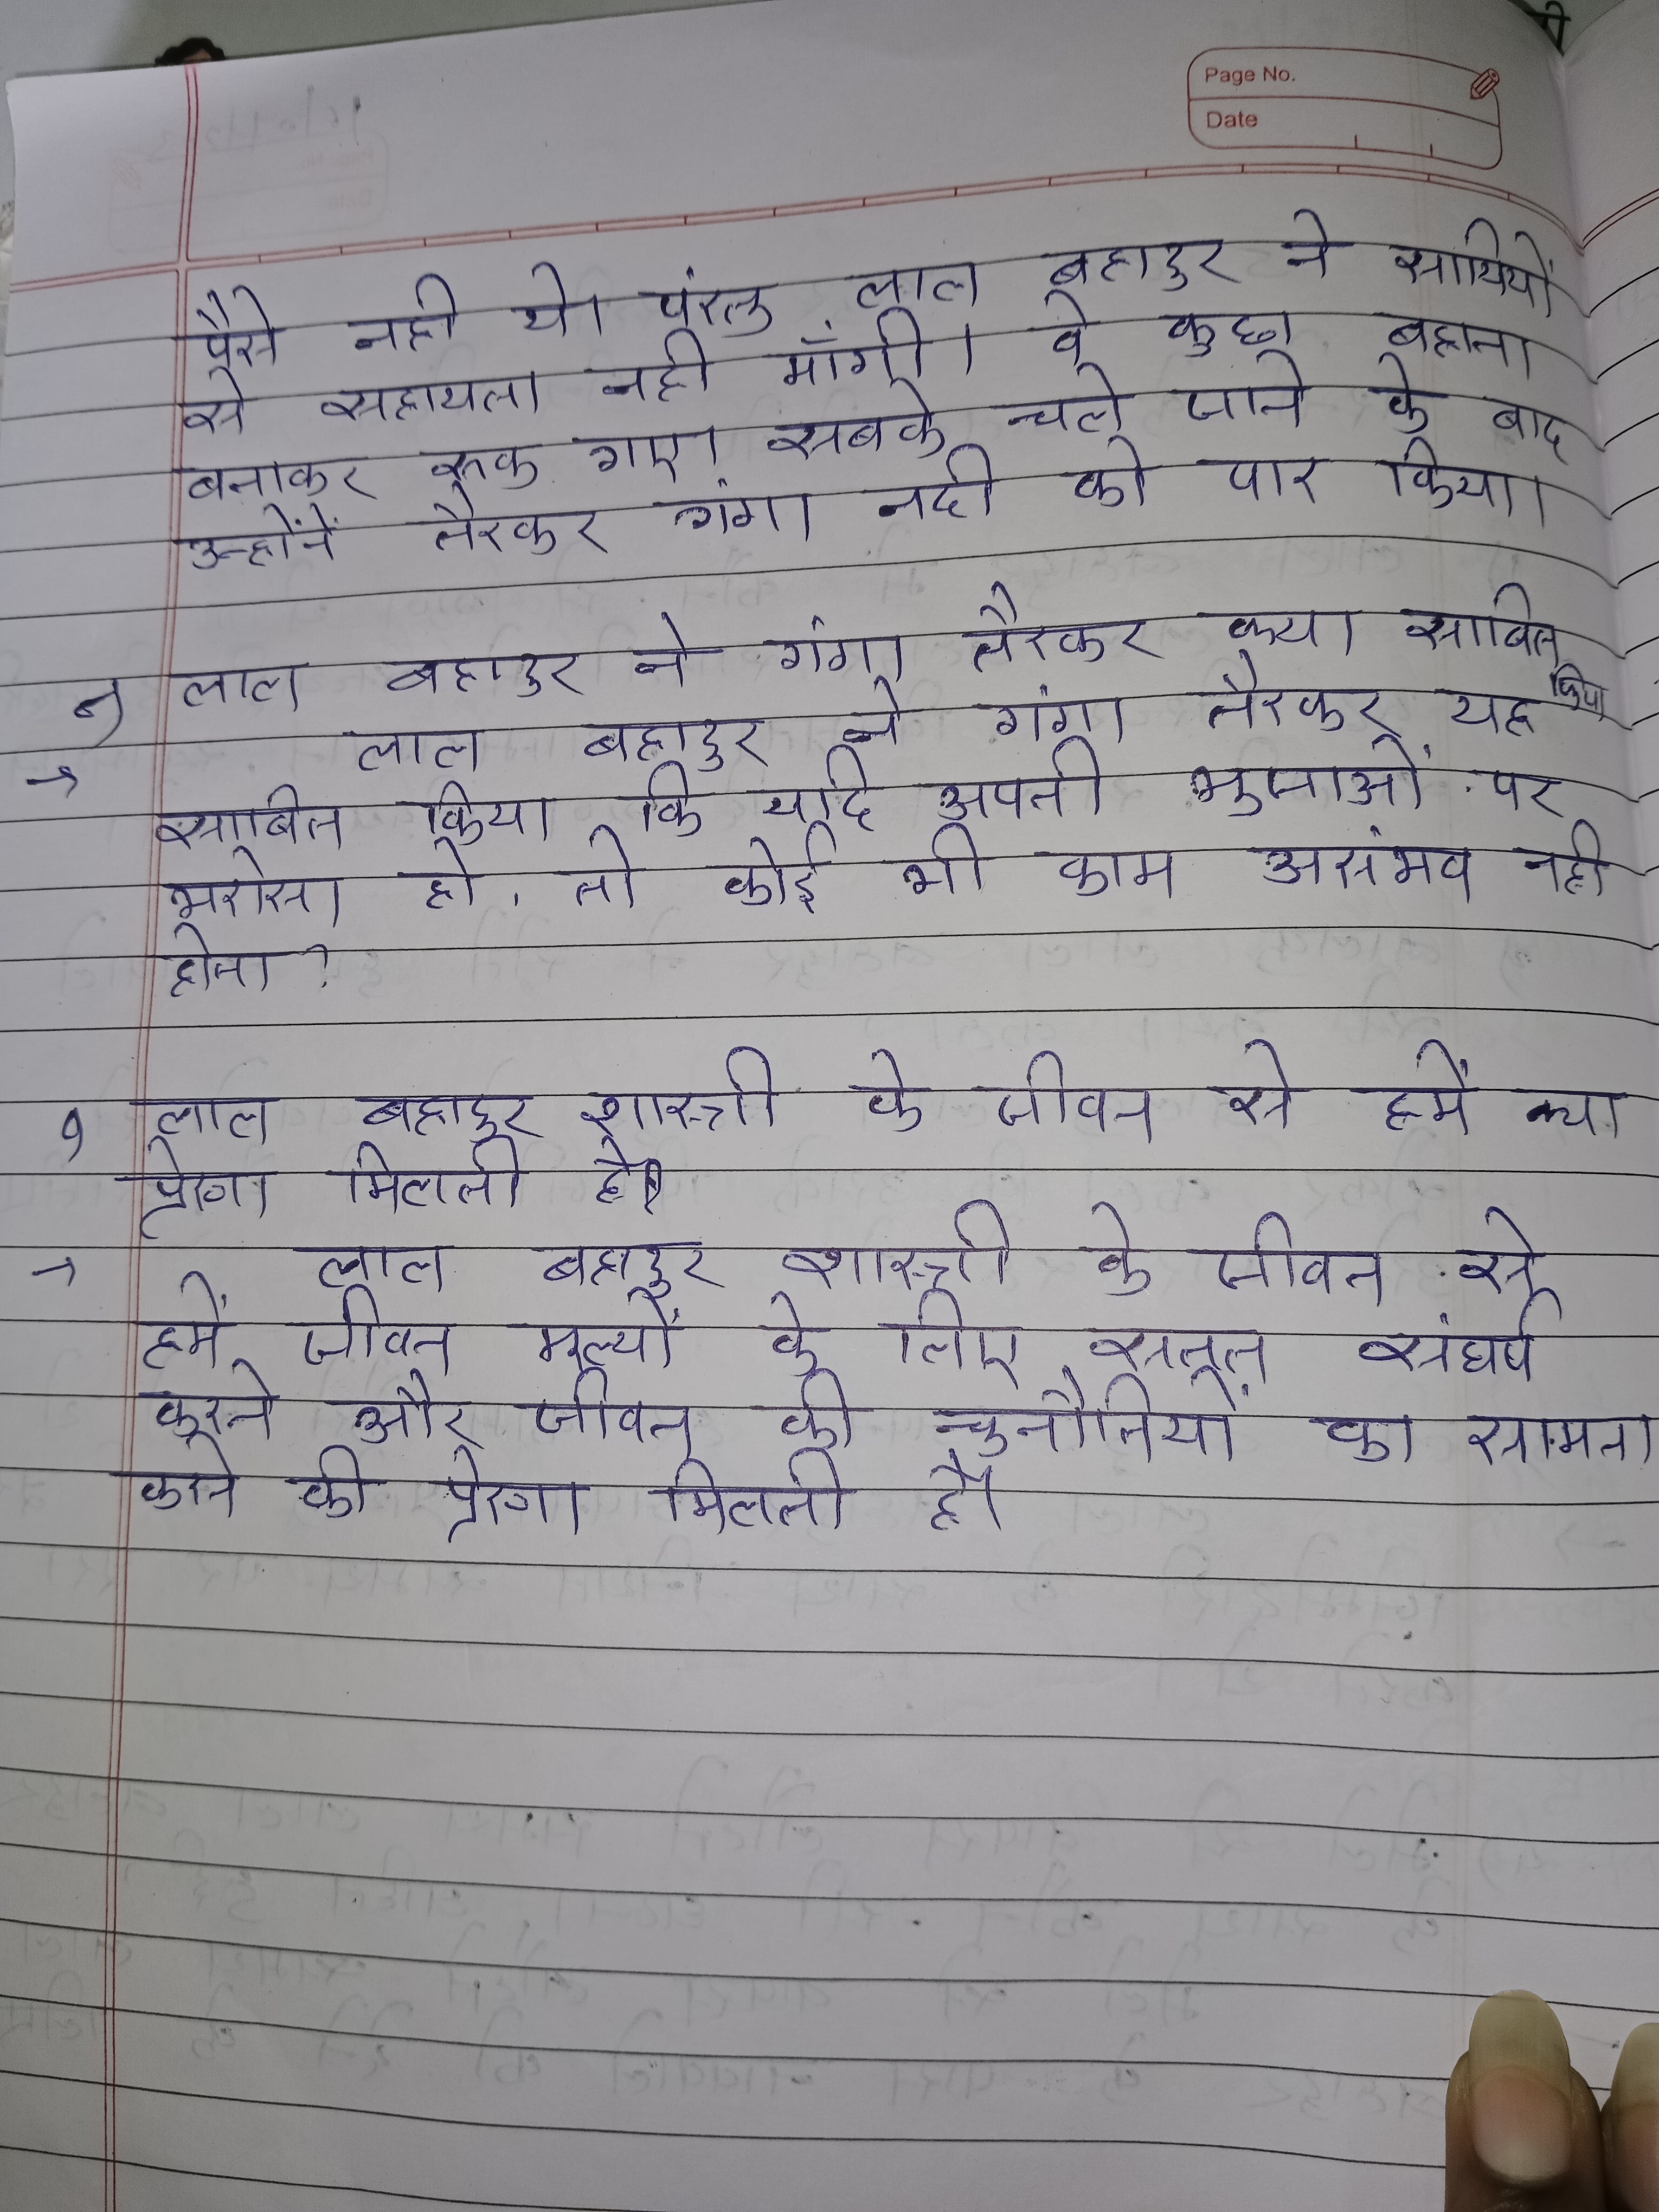 Page No.
Date
पैसे नही थे। पंरतु लाल बहादुर ने साथियों
से सहायता नही माँगी। वे कुछ बहाना
बनाकर रूक गए। सबके चले जाने के बाद
उन्होंनें तैरकर गंगा नदी को पार किया।
लाल बहादुर ने गंगा तैरकर क्या साबित
किया
→ लाल बहादुर ने गंगा तैरकर यह
साबित किया कि यदि अपनी भुजाओं पर
भरोसा हो, तो कोई भी काम असंभव नही
होता?
लाल बहादुर शास्त्री के जीवन से हमें क्या
प्रेरणा मिलती है?
→ लाल बहादुर शास्त्री के जीवन से
हमें जीवन मूल्यों के लिए सतत संघर्ष
करने और जीवन की चुनौतियों का सामना
करने की प्रेरणा मिलती है।